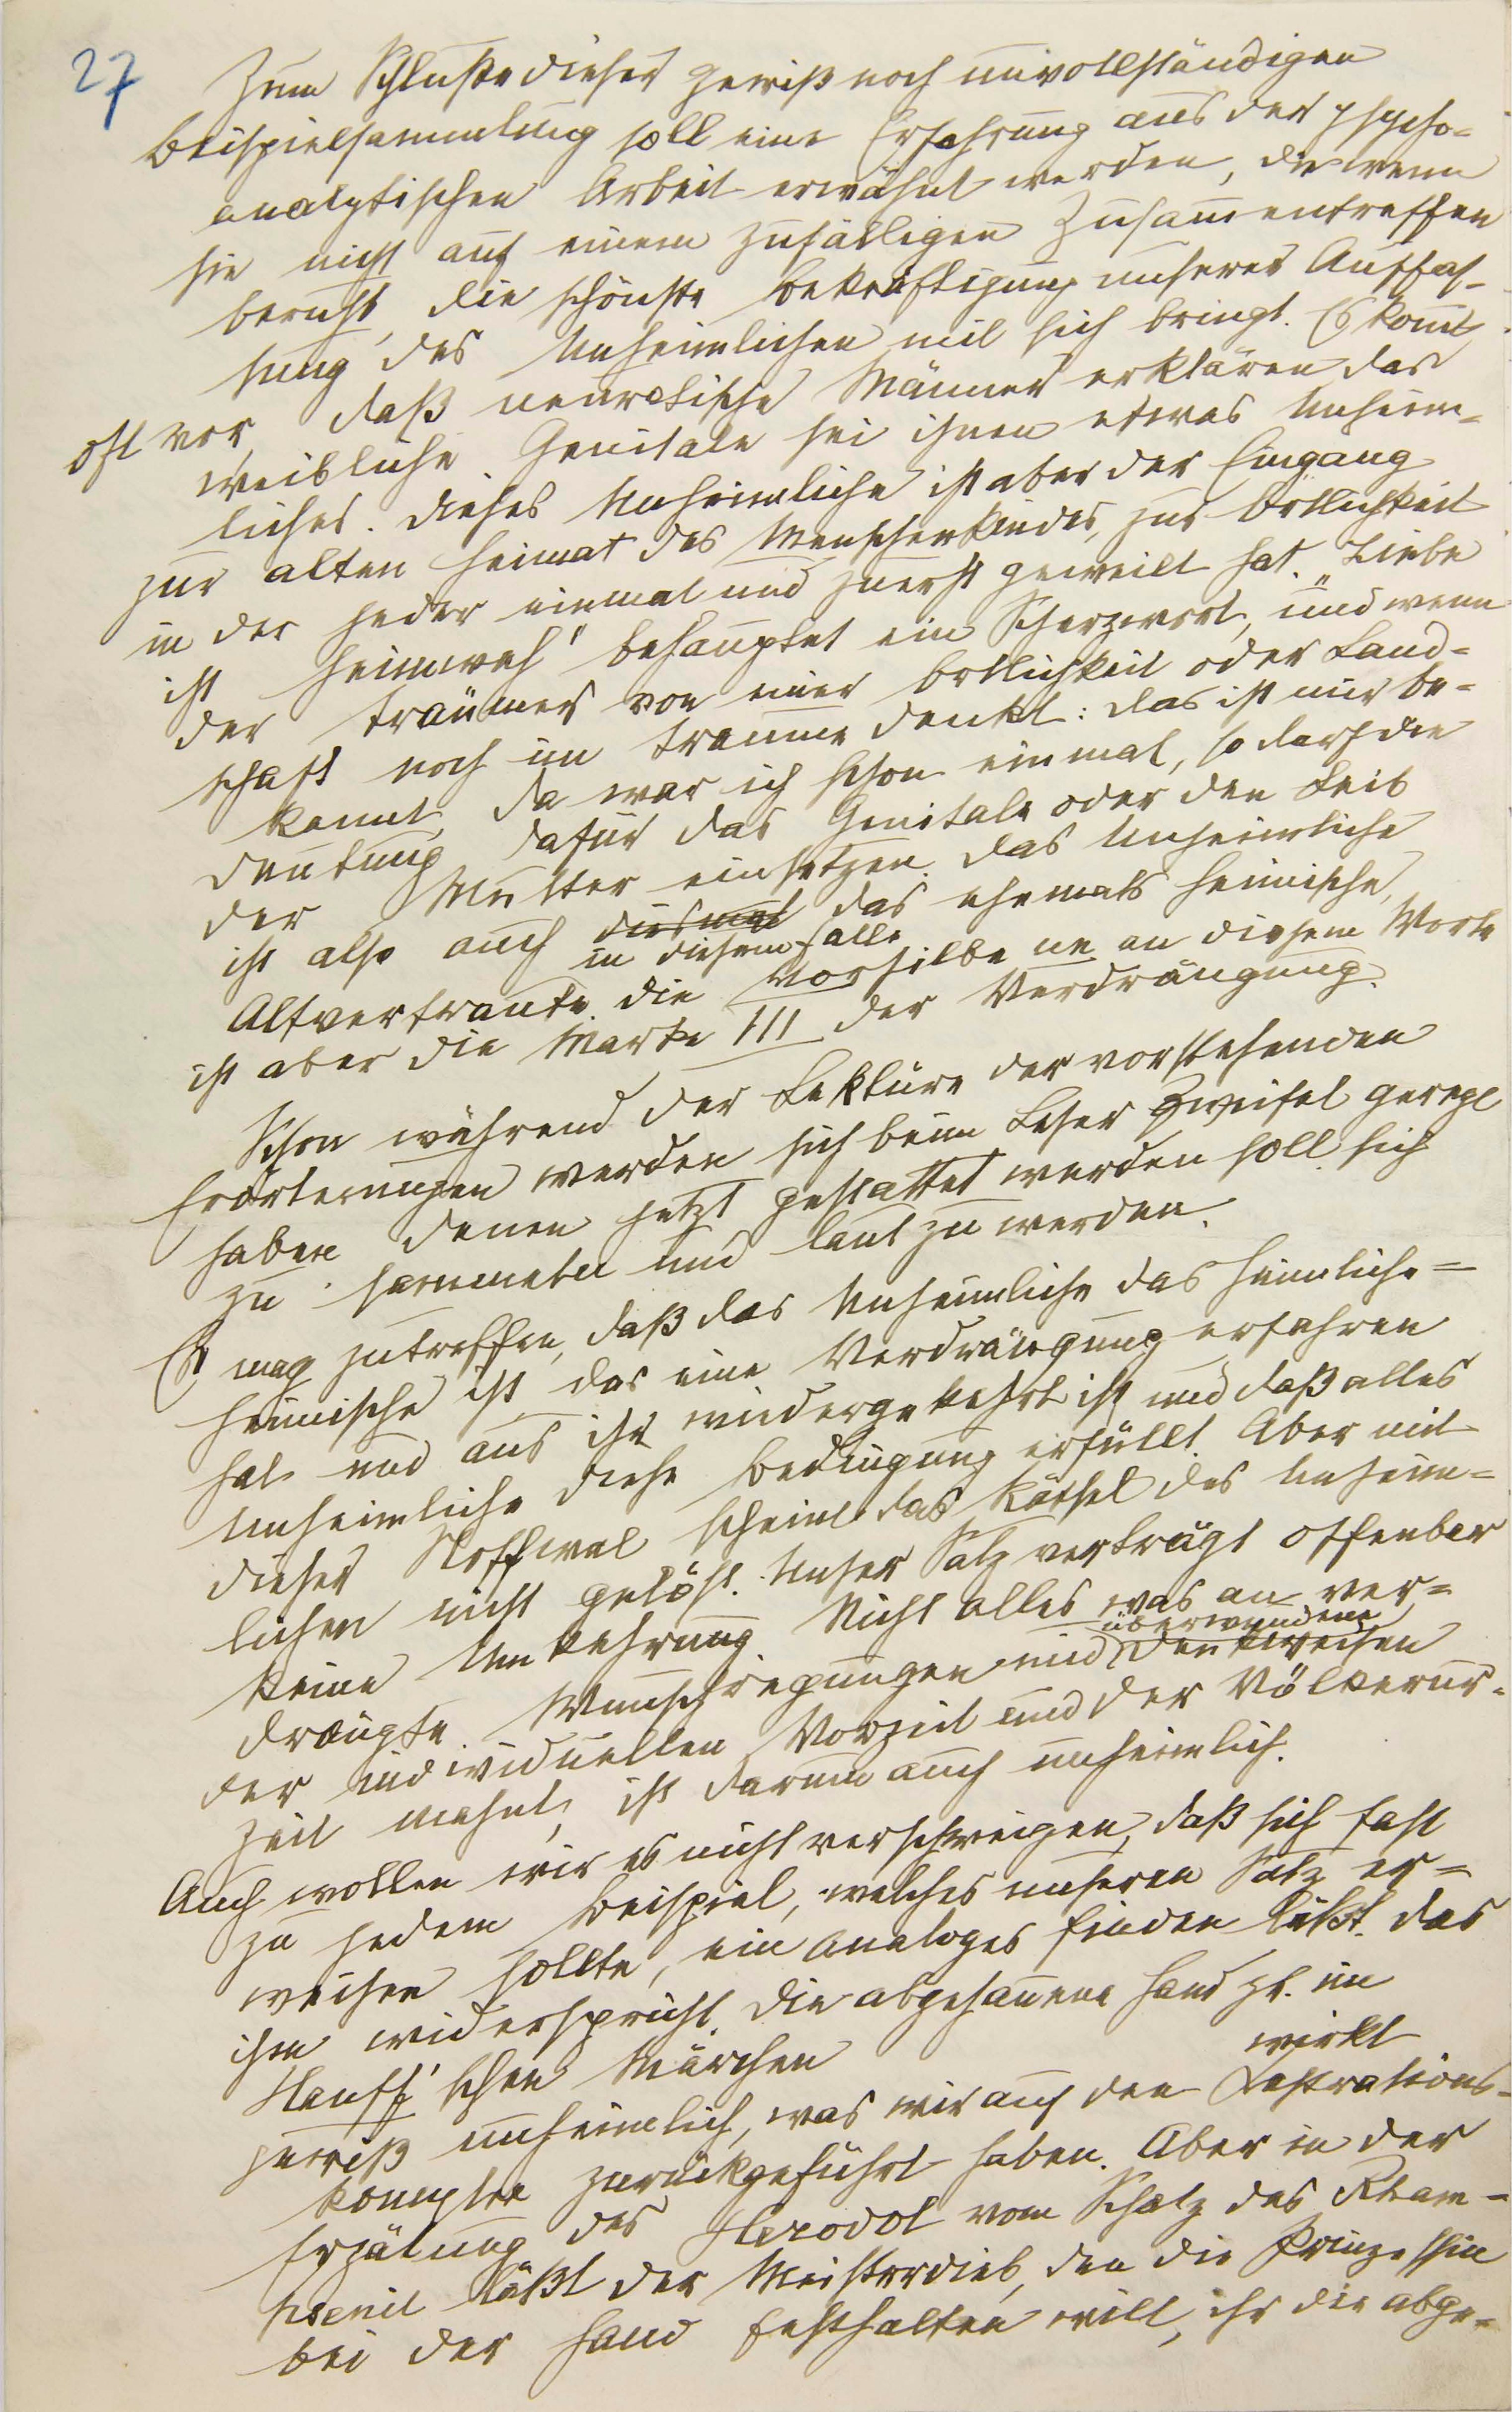 27
Zum Schluße dieser gewiß noch unvollständigen
Beispielsammlung soll eine Erfahrung aus der psycho-
analytischen Arbeit erwähnt werden, die wenn
sie nicht auf einem zufälligen Zusammentreffen
beruht, die schönste Bekräftigung unserer Auffas-
sung des Unheimlichen mit sich bringt. Es komt
oft vor, daß neurotische Männer erklären das
weibliche Genitale sei ihnen etwas Unheim-
liches. Dieses Unheimliche ist aber der Eingang
zur alten Heimat des Menschenkindes, zur Örtlichkeit
in der jeder einmal und zuerst geweilt hat. „Liebe
ist Heimweh' behauptet ein Scherzwort, und wenn
der Träumer von einer Örtlichkeit oder Land-
schaft noch im Traume denkt: das ist mir be-
kannt, da war ich schon einmal, so darf die
Deutung dafür das Genitale oder den Leib
der Mutter einsetzen. Das Unheimliche
ist also auch diesmal das ehemals Heimische,
in diesem Falle
Altvertraute. Die Vorsilbe un an diesem Worte
ist aber die Marke III der Verdrängung.
Schon während der Lektüre der vorstehenden
Erörterungen werden sich beim Leser Zweifel geregt
haben denen jetzt gestattet werden soll sich
zu sammeln und laut zu werden.
Es mag zutreffen, daß das Unheimliche das Heimliche-
Heimische ist, das eine Verdrängung erfahren
hat und aus ihr wiedergekehrt ist und daß alles
Unheimliche diese Bedingung erfüllt. Aber mit
dieser Stoffwal scheint das Rätsel des Unheim-
lichen nicht gelöst. Unser Satz verträgt offenbar
keine Umkehrung. Nicht alles was an ver-
drängte Wunschregungen und überwundene Denkweisen
der individuellen Vorzeit und der Völkerur-
zeit mahnt, ist darum auch unheimlich.
Auch wollen wir es nicht verschweigen, daß sich fast
zu jedem Beispiel, welches unseren Satz er-
weisen sollte, ein analoges finden läßt. das
ihm widerspricht. Die abgehauene Hand zb. im
Hauff'schen Märchen wirkt
gewiß unheimlich, was wir auf den Kastrations-
komplex zurückgeführt haben. Aber in der
Erzälung des Herodot vom Schatz des Rham-
psenit läßt der Meisterdieb, den die Prinzessin
bei der Hand festhalten will, ihr die abge-